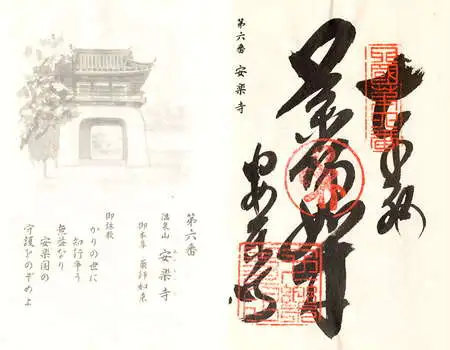 奉納
薬師如来
安楽寺
第六番 安楽寺
第六番
温泉山 安楽寺
御本尊 薬師如来
御詠歌
かりの世に
知行争う
無益なり
安楽国の
守護をのぞめよ